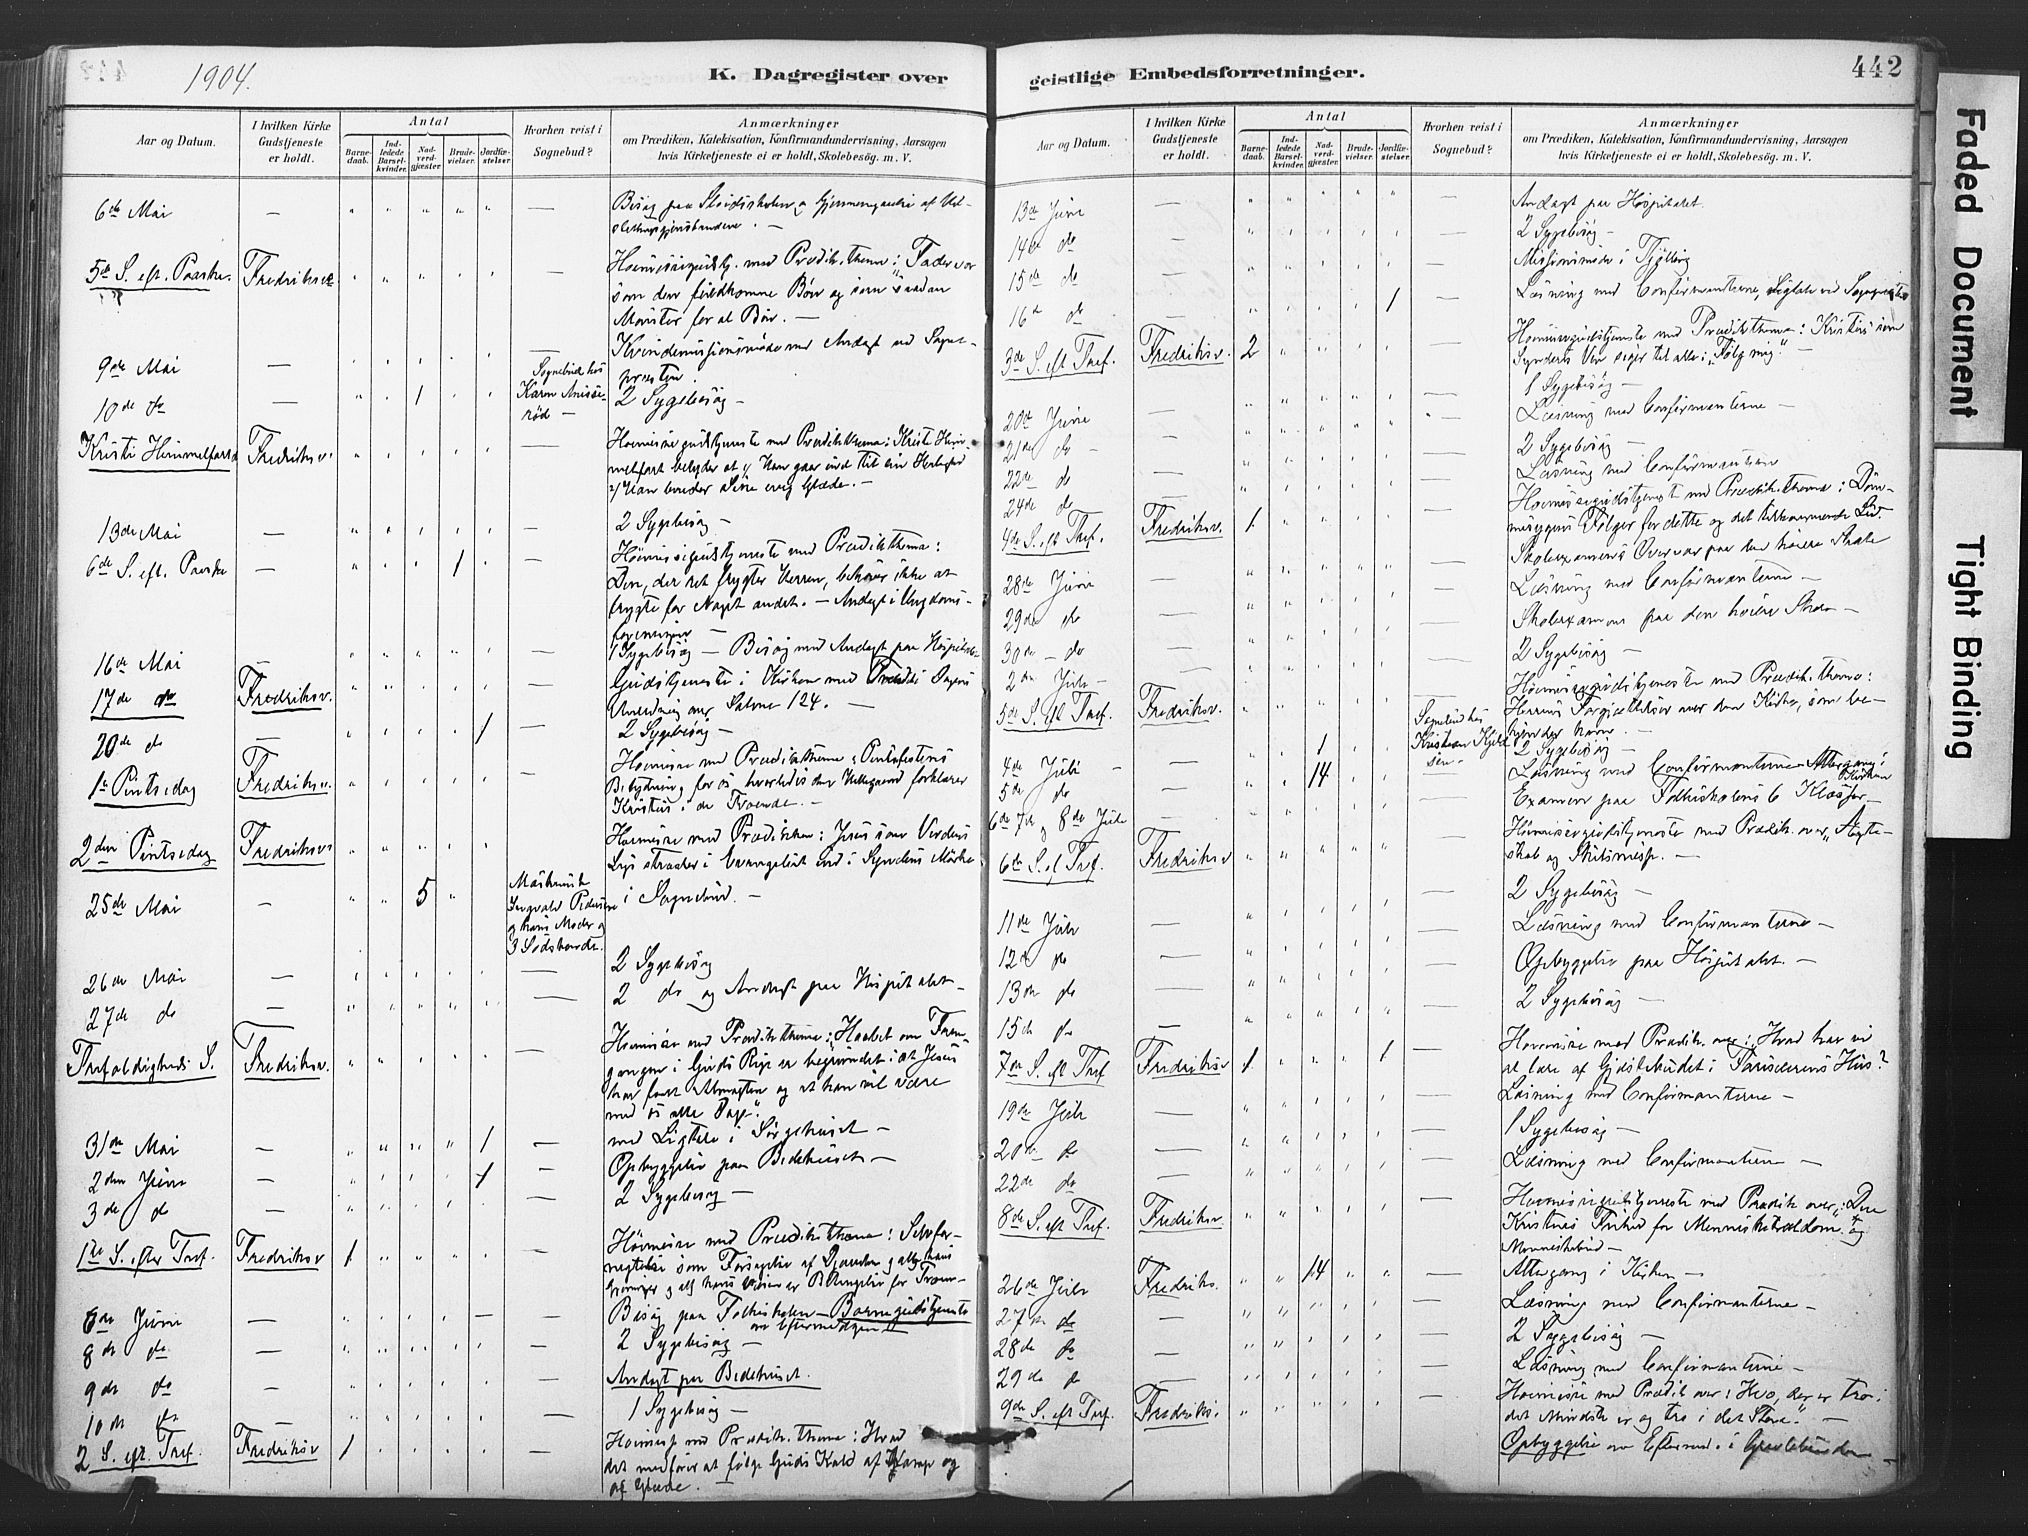 1904.
K. Dagregister over
Aar og Datum.
I hvilken Kirke Gudstjeneste er holdt.
Antal
Barnedaab.
Indledede Barselkvinder.
Nadverdgjæster
Brudevielser.
Jordfæstelser.
Hvorhen reist i Sognebud?
Anmærkninger
om Prædiken, Katekisation, Konfirmandundervisning, Aarsagen
hvis Kirketjeneste ei er holdt, Skolebesøg. m. V.
6te Mai
5te S. eft. Paaske. Fredriksv. Høimessegudstj. med Prædikthema: Fader vor
som den fuldkomne Bøn og som saadan
Mønster for al Bøn. —
9de Mai — Kvindemissionsmøde med Andagt ved Sogne-
præsten.
10de do — 1 Sognebud hos
Karen
2 Sygebesøg —
Kristi Himmelfartsd. Fredriksv. Høimessegudstjeneste med Prædikthema: Kristi Him-
melfart betyder at 1/ Han gaar ind til sin Herlighed
2/ Han bereder Sine evig Glæde. —
13de Mai — 2 Sygebesøg —
6te S. eft. Paaske — 1 Høimessegudstjeneste med Prædikthema:
Den, der ret frygter Herren, behøver ikke at
frygte for Noget andet. — Andagt i Ungdoms-
foreningen —
16de Mai — 1 Sygebesøg — Besøg med Andagt paa Hospitalet
17de do Fredriksv. Gudstjeneste i Kirken med Præd. i Dagens
Anledning over Salme 124. —
20de do 1 — 2 Sygebesøg —
1ste Pintsedag Fredriksv. Høimesse med Prædikthema: Pintsefestens
Betydning for os hvorledes den Helligaand forklarer
Kristus i de Troende. —
2den Pintsedag Fredriksv. Høimesse med Prædiken: Jesus som Verdens
Lys straaler i Evangeliet ind i Syndens Mørke.
25de Mai — 5 Maskinist
Ingvald Pedersen
og hans Moder og
3 Sødskende.
i Sognebud. —
26de Mai — 2 Sygebesøg
27de do — 2 do og Andagt paa Hospitalet —
Trefoldigheds S. Fredriksv. Høimesse med Prædikthema: "Haabet om Frem-
gangen i Guds Rige er begrundet i at Jesus
har faaet Almagten og at han vil være
med os alle Dage."
31de Mai — 1 — med Ligtale i Sørgehuset —
2den Juni — 1 — Opbyggelse paa Bedehuset —
3de do — 2 Sygebesøg —
1ste S. efter Tref. Fredriksv 1 Høimesse med Prædikthema: Selvfor-
6te Juni — Besøg paa Folkeskolen — Barnegudstjeneste
om Eftermiddagen
8de do — 2 Sygebesøg —
9de do — Andagt paa Bedehuset.
10de do — 1 Sygebesøg —
2 S. eft. Tref. Fredriksv 1 Høimesse med Prædik. thema: Hvad
det medfører at følge Guds Kald af Kamp og
af Glæde.
442
geistlige Embedsforretninger.
Aar og Datum.
I hvilken Kirke Gudstjeneste er holdt.
Antal
Barnedaab.
Indledede Barselkvinder.
Nadverdgjæster
Brudevielser.
Jordfæstelser.
Hvorhen reist i Sognebud?
Anmærkninger
om Prædiken, Katekisation, Konfirmandundervisning, Aarsagen
hvis Kirketjeneste ei er holdt, Skolebesøg. m. V.
13de Juni — Andagt paa Hospitalet.
14de do — 2 Sygebesøg —
15de do — Missionsmøde i Tjølling
16de do 1 — Læsning med Confirmanterne, Ligtale ved
3de S. eft Tref. Fredriksv. 2 Høimessegudstjeneste med Prædikthema: Kristus som
Synderes Ven siger til alle: "Følg mig." —
1 Sygebesøg —
20de Juni — Læsning med Confirmanterne —
21de do — 2 Sygebesøg —
22de do — Læsning med Confirmanterne
24de do —
4de S. eft Tref. Fredriksv. 1 Høimessegudstjeneste med Prædik. thema: Døm-
mesygens Følger for dette og det tilkommende Liv
28de Juni — Skoleexamens Overvær paa den høiere Skole
29de do — Læsning med Confirmanterne —
30de — do — Skoleexamens paa den høiere Skole —
2den Juli — 2 Sygebesøg —
5de S. eft Tref. Fredriksv. Høimessegudstjeneste med Prædik. thema:
Herrens over den Kirke, som be-
kjender ham. —
4de Juli — 1 Sognebud hos
Kristian
2 Sygebesøg —
5de do — 14 Læsning med Confirmanterne — Altergang i
Kirken
6te 7de og 8de Juli — Examen paa Folkeskolens 6 Klasser —
6te S. ef Tref. Fredriksv Høimessegudstjeneste med Prædik. over "Ægte-
skab og Skilsmisse. —
11de Juli — 2 Sygebesøg —
12te do — Læsning med Confirmanterne —
13de do — Opbyggelse paa Hospitalet. —
15de do — 2 Sygebesøg —
7de S. eft Tref Fredriksv 1 1 Høimesse med Prædik. over: "Hvad har vi
at lære af Gjæstebudet i Farisæerens Hus?
19de Juli — Læsning med Confirmanterne —
20de do — 1 Sygebesøg —
22de do — Læsning med Confirmanterne —
8de S. eft Tref. Fredriksv. Høimessegudstjeneste med Prædik over: "Den
Kristnes Frihed for Mennesketrældom og
Menneskebud —
26de Juli Fredriksv. 14 — Altergang i Kirken —
27de do — Læsning med Confirmanterne —
28de do — 2 Sygebesøg —
29de do — Læsning med Confirmanterne —
9de S. eft Tref. Fredriksv. Høimesse med Prædik over: Hvo, der er tro i
det Mindste er og tro i det Store." —
Opbyggelse om Efterm. i
Faded Document
Tight Binding